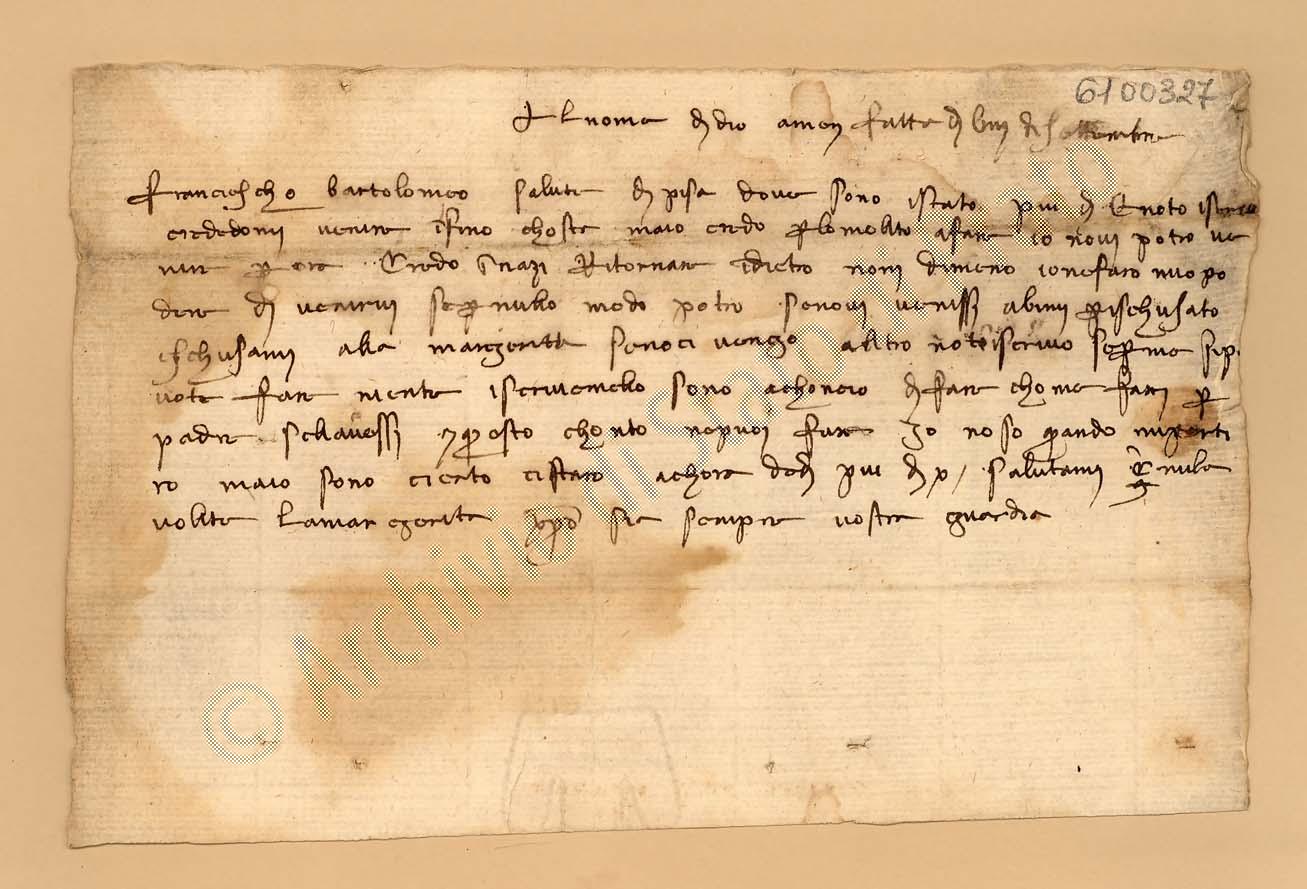 6100327
Al nome di dio amen fatta di viii di settenbre
Franciescho bartolomeo salute di pisa dove sono istato piu di e noto iscrito
credendomi venire ifino choste ma io credo per lo molto afare io novi potro ve
nire per ora credo inazi Ritornare idietro noni dimeno io ne faro mio po
dere di venirvi se per nullo modo potro se novi venissi abimi per ischusato
ischusami alla margerita se noci vengho altro no ti iscrivo se per me si p
uote fare niente iscrivemello sono achoncio di fare chome farei per
padre se llavessi 7 questo chonto ne puoi fare Io no so quando mi parti
ro ma io sono cierto ci staro anchora dodi piu di x / salutami e mile
volte la margerita cristo sia senpre vostra guardia
© Archivio di Stato di Prato